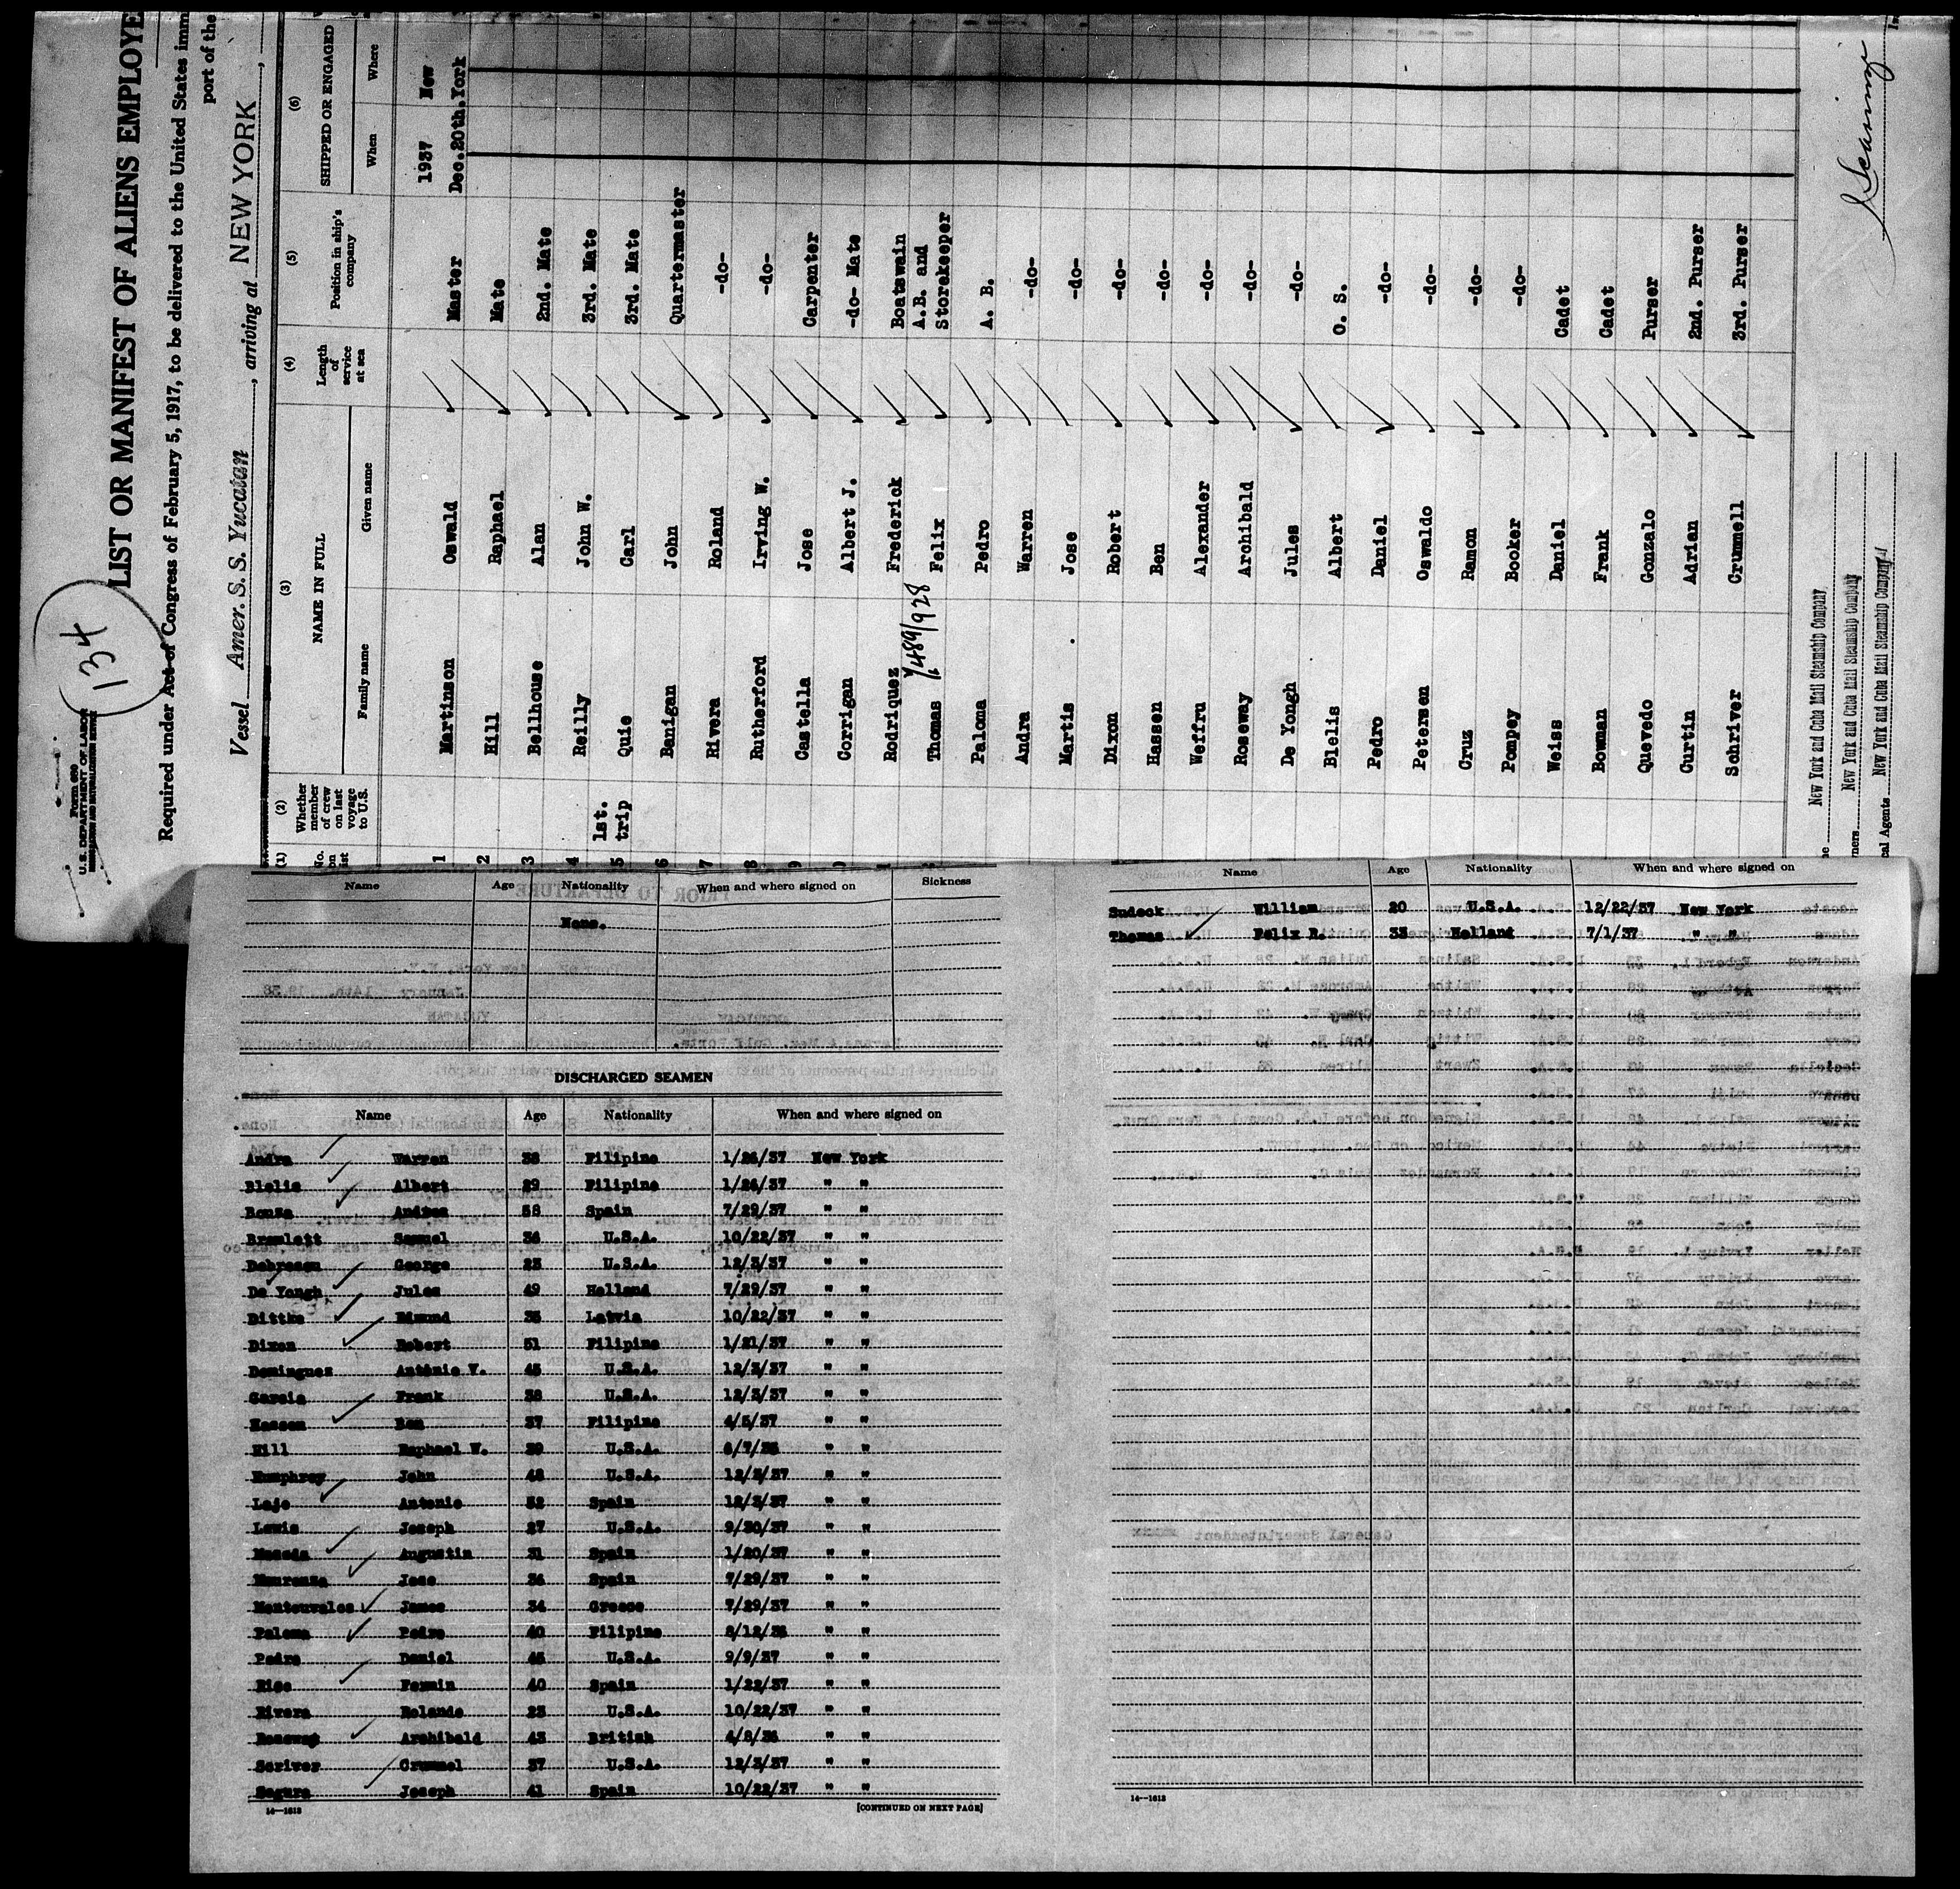 134
Form 680
U.S. DEPARTMENT OF LABOR
LIST OR MANIFEST OF ALIENS EMPLOYE
Required under Act of Congress of February 5, 1917, to be delivered to the United States imm
port of the
Vessel Amer. S. S. Yucatan, arriving at NEW YORK,
(1) (2) (3) (4) (5) (6)
No. on list Whether member of crew on last voyage to U.S. NAME IN FULL Length of service at sea Position in ship's company SHIPPED OR ENGAGED
Family name Given name When Where
1937 New
1 Martinson Oswald Master Dec. 20th. York
2 Hill Raphael Mate
3 Bellhouse Alan 2nd. Mate
4 Reilly John W. 3rd. Mate
1st.
5 trip Quie Carl 3rd. Mate
6 Banigan John Quartermaster
7 Rivera Roland -do-
8 Rutherford Irving W. -do-
9 Castella Jose Carpenter
Corrigan Albert J. -do- Mate
Rodriquez Frederick Boatswain
489/928
Thomas Felix A.B. and Storekeeper
Paloma Pedro A. B.
Andra Warren -do-
Martis Jose -do-
Dixon Robert -do-
Hassen Ben -do-
Weffru Alexander -do-
Roseway Archibald -do-
De Yongh Jules -do-
Blelis Albert O. S.
Pedro Daniel -do-
Petersen Oswaldo -do-
Cruz Ramon -do-
Pompey Booker -do-
Weiss Daniel Cadet
Bowman Frank Cadet
Quevedo Gonzalo Purser
Curtin Adrian 2nd. Purser
Schriver Crummell 3rd. Purser
New York and Cuba Mail Steamship Company
ners New York and Cuba Mail Steamship Company
cal Agents New York and Cuba Mail Steamship Company
Name Age Nationality When and where signed on Sickness
None.
DISCHARGED SEAMEN
Name Age Nationality When and where signed on
Andra Warren 38 Filipino 1/26/37 New York
Blelis Albert 29 Filipino 1/26/37 " "
Bouza Andres 58 Spain 7/29/37 " "
Bramlett Samuel 36 U.S.A. 10/22/37 " "
George 23 U.S.A. 12/3/37 " "
De Yongh Jules 49 Holland 7/29/37 " "
Dittke Edmund 35 Latvia 10/22/37 " "
Dixon Robert 51 Filipino 1/21/37 " "
Dominguez Antonio V. 45 U.S.A. 12/3/37 " "
Garcia Frank 38 U.S.A. 12/3/37 " "
Hassen Ben 37 Filipino 4/5/37 " "
Hill Raphael W. 39 U.S.A. " "
Humphrey John 48 U.S.A. 12/3/37 " "
Laje Antonio 52 Spain 12/3/37 " "
Lewis Joseph 27 U.S.A. 9/30/37 " "
Augustin 31 Spain 1/20/37 " "
Jose 36 Spain 7/29/37 " "
James 34 Greece 7/29/37 " "
Paloma Pedro 40 Filipino 8/12/36 " "
Pedro Daniel 45 U.S.A. 9/9/37 " "
Fermin 40 Spain 1/22/37 " "
Rivera Rolando 23 U.S.A. 10/22/37 " "
Roseway Archibald 43 British 4/8/36 " "
Scriver Crummel 37 U.S.A. 12/3/37 " "
Segura Joseph 41 Spain 10/22/37 " "
14—1613
[CONTINUED ON NEXT PAGE]
Name Age Nationality When and where signed on
Sudeck William 20 U.S.A. 12/22/37 New York
Thomas Felix R. 33 Holland 7/1/37 " "
14—1613